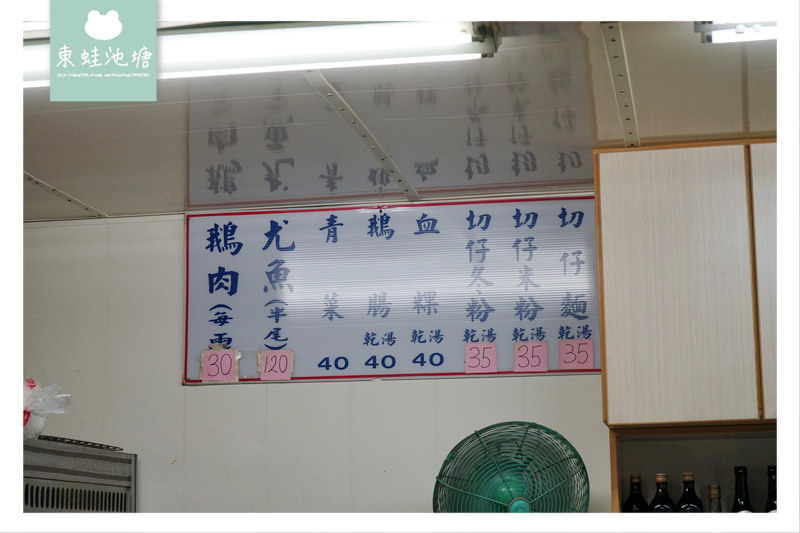 東蛙池塘
切仔麵 乾湯 35
切仔米粉 乾湯 35
切仔冬粉 乾湯 35
血粿 乾湯 40
鵝腸 乾湯 40
青菜 40
尤魚(半尾) 120
鵝肉(每 30